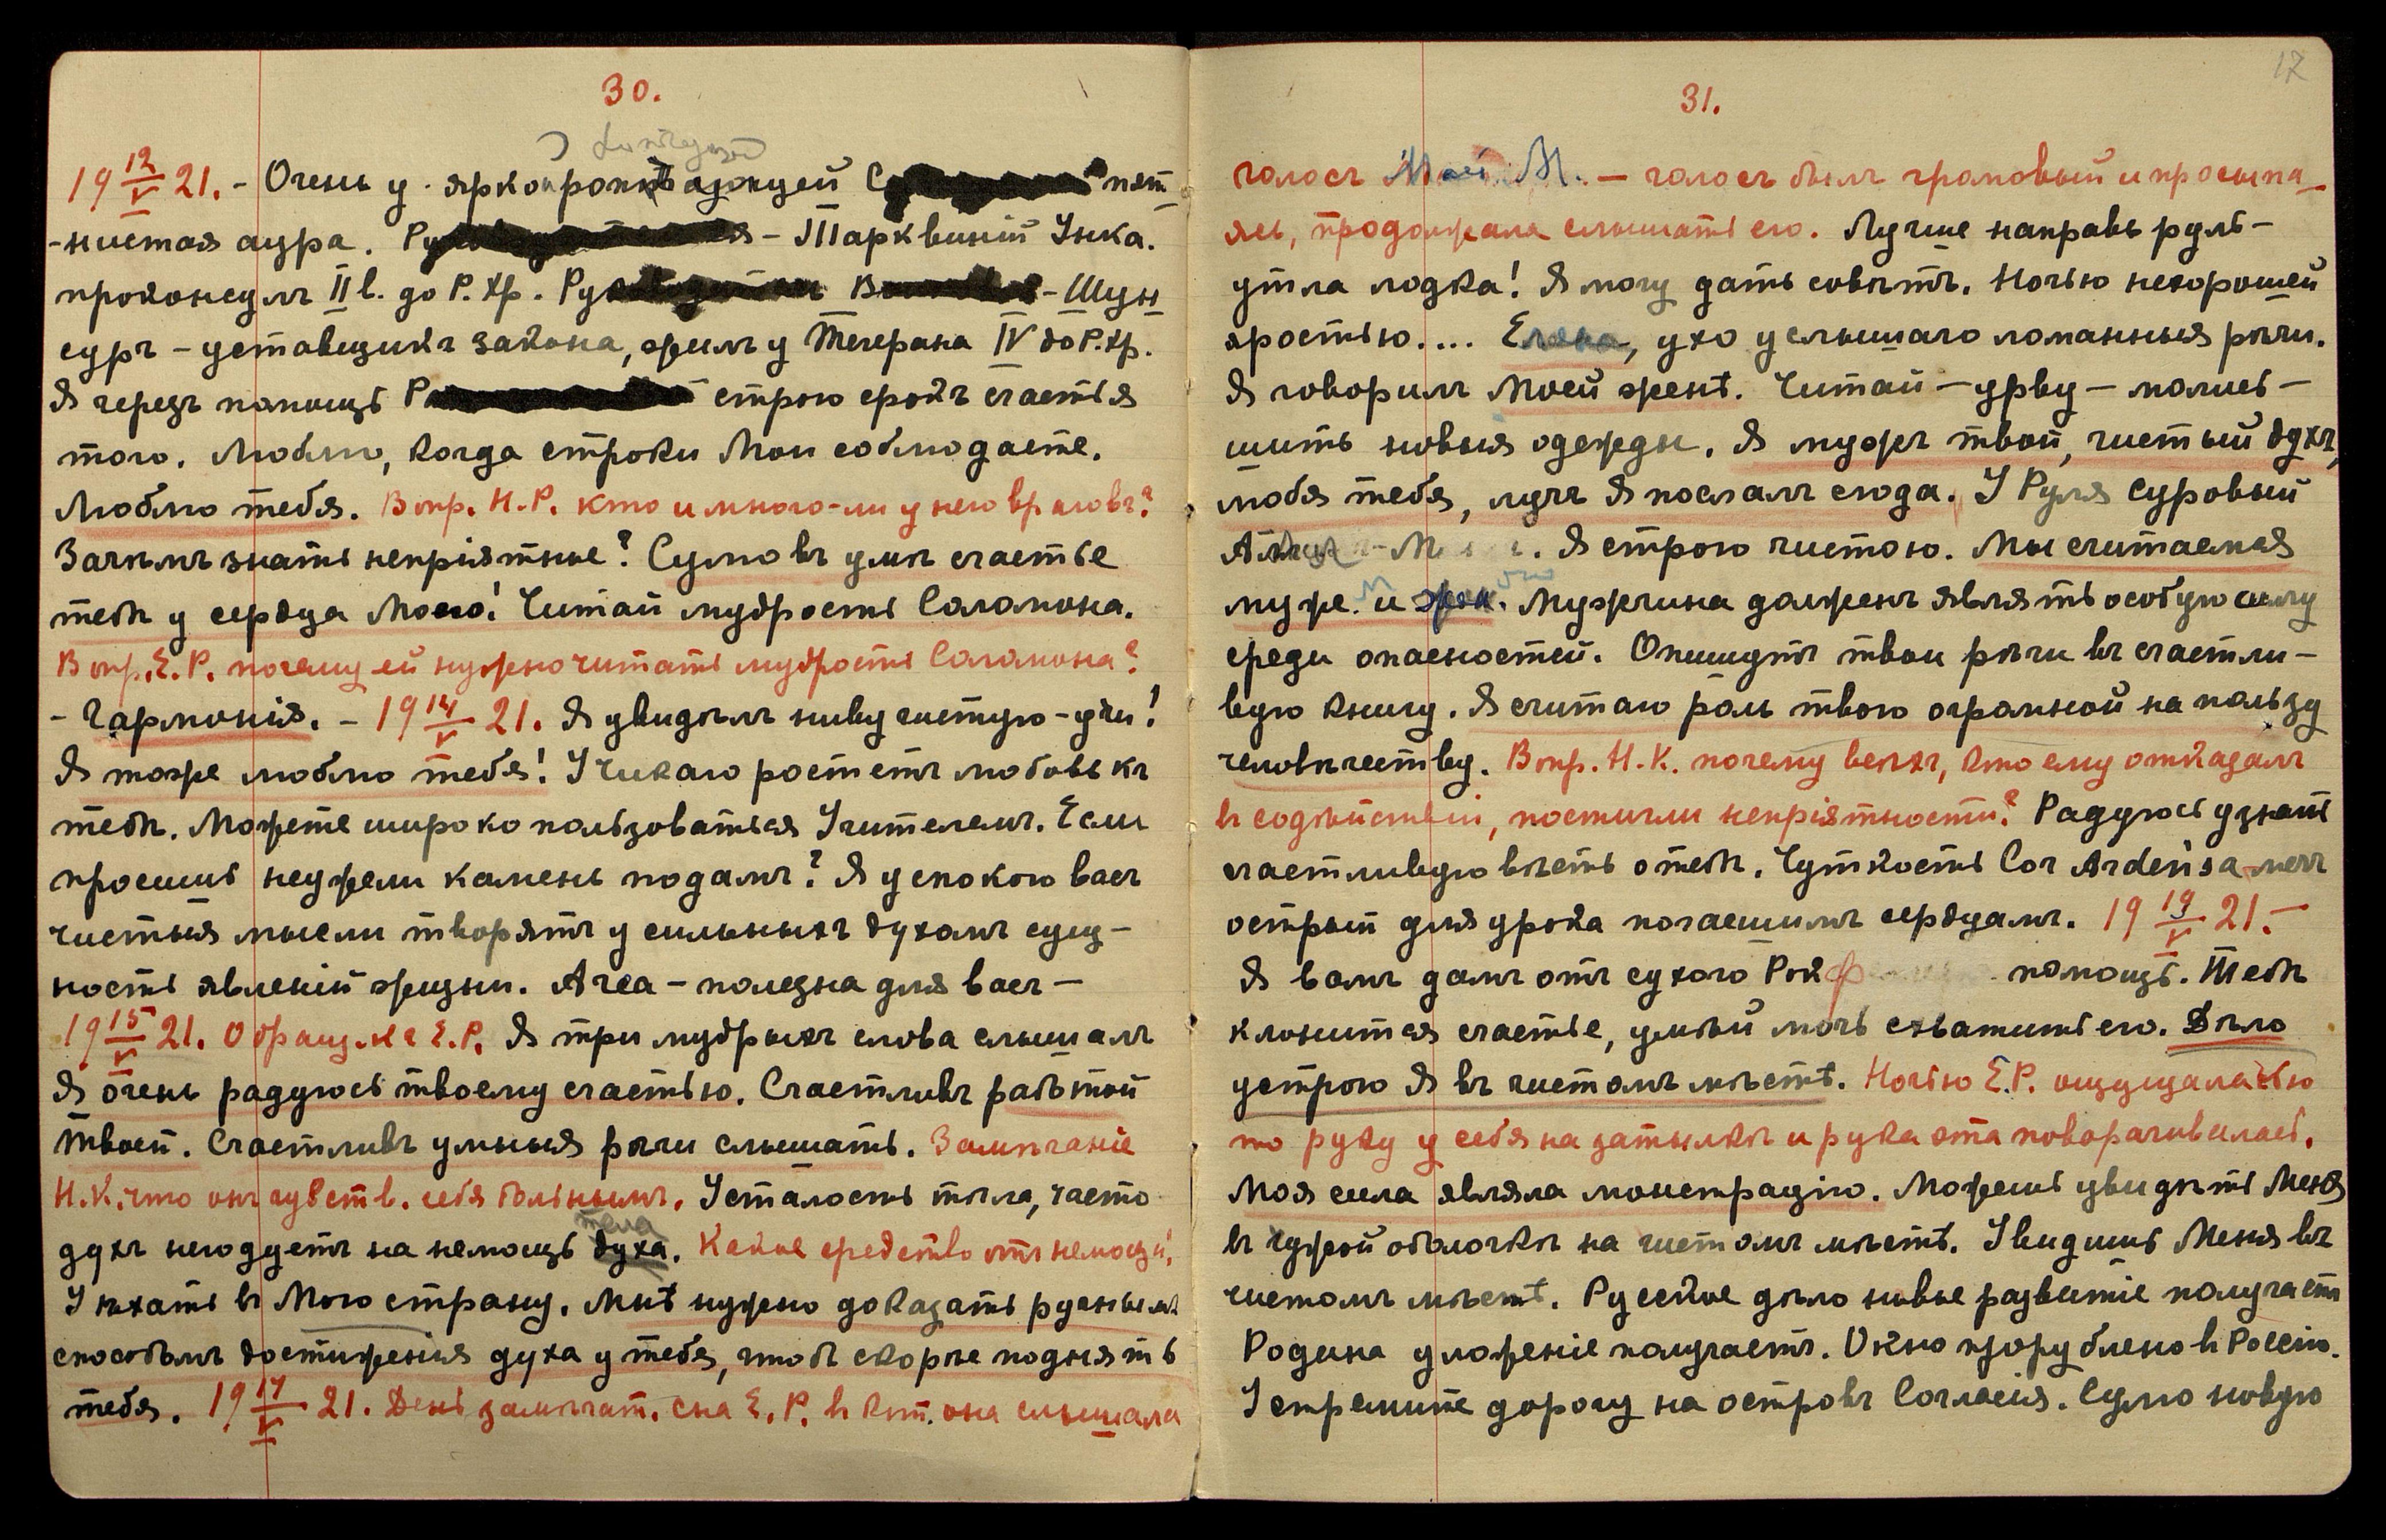 30.
19 12/V 21. - Очень у яркопроникающей пят
-нистая аура. - Тарквиній Унка.
проконсулъ II в. до Р. Хр. - Шун
суръ - уставщикъ закона, жилъ у Тегерана IV до Р. Хр.
Я черезъ помощь строю срокъ счастья
того. Люблю, когда строки Мои соблюдаете.
Люблю тебя. Вопр. Н.Р. кто и много-ли у него враговъ?
Зачѣмъ знать непріятное? Сумю въ умѣ счастье
тебѣ у сердца Моего! Читай мудрость Соломона.
Вопр. Е.Р. почему ей нужно читать мудрость Соломона?
- Гармонія. - 19 14/V 21. Я увидѣлъ ниву чистую - учи!
Я тоже люблю тебя! У Чикаго ростетъ любовь къ
тебѣ. Можете широко пользоваться Учителемъ. Если
просишь неужели камень подамъ? Я успокою васъ
чистыя мысли творятъ у сильныхъ духомъ сущ-
ность явленій жизни. - полезна для васъ -
19 15/V 21. Обращ. къ Е.Р. Я три мудрыхъ слова слышалъ
Я очень радуюсь твоему счастью. Счастливъ работой
твоей. Счастливъ умныя рѣчи слышать. Замѣчаніе
Н.К. что онъ чувств. себя больнымъ. Усталость тѣла, часто
тела
духъ негодуетъ на немощь духа. Какое средство отъ немощи?
Уѣхать въ Мою страну. Мнѣ нужно доказать руднымъ
способомъ достиженія духа у тебя, чтобъ скорѣе поднять
тебя. 19 17/V 21. День замѣчат. сна Е.Р. въ кот. она слышала
17
31.
голосъ М. — голосъ былъ громовый и просыпа-
ясь, продолжала слышать его. Лучше направь руль -
утла лодка! Я могу дать совѣтъ. Ночью нехорошей
яростью.... Елена, ухо услышало ломанныя рѣчи.
Я говорилъ Моей женѣ. Читай - урву - молись -
шить новыя одежды. Я мужъ твой, чистый духъ,
любя тебя, лучъ Я послалъ сюда. У Руля суровый
Я строю чистою. Мы считаемся
муже. и жен. Мужчина долженъ являть особую силу
среди опасностей. Опишутъ твои рѣчи въ счастли-
вую книгу. Я считаю роль твою огромной на пользу
человѣчеству. Вопр. Н.К. почему всѣхъ, кто ему отказалъ
въ содѣйствіи, постигли непріятности? Радуюсь узнать
счастливую вѣсть о тебѣ. Чуткость Cor Ardens'а мечъ
острый для урока погасшимъ сердцамъ. 19 19/V 21. -
Я вамъ далъ отъ сухого помощь. Тебѣ
клонится счастье, умѣй мочь схватить его. Дѣло
устрою Я въ чистомъ мѣстѣ. Ночью Е.Р. ощущала чью
то руку у себя на затылкѣ и рука эта поворачивалась.
Моя сила являла монстрацію. Можешь увидѣть Меня
въ чужой оболочкѣ на чистомъ мѣстѣ. Увидишь Меня въ
чистомъ мѣстѣ. Русское дѣло новое развитіе получаетъ
Родина уложеніе получаетъ. Окно прорублено въ Россію.
Устремите дорогу на островъ Согласія. Сумю новую